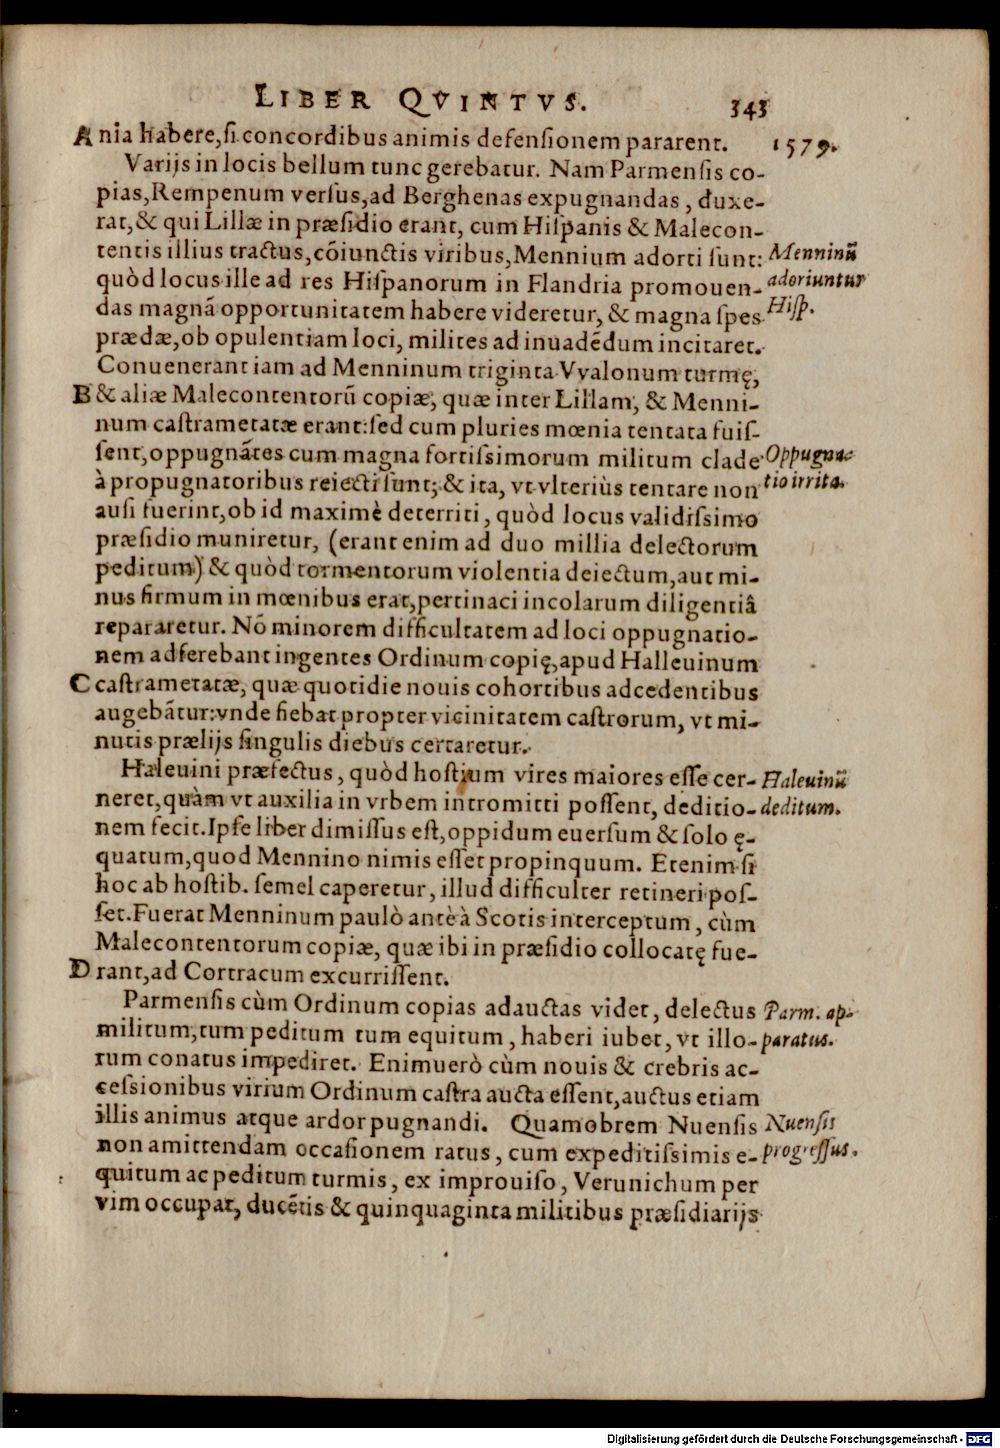 LIBER QVINTVS. 343
A nia habere, si concordibus animis defensionem pararent. 1579.
Varijs in locis bellum tunc gerebatur. Nam Parmensis co-
pias, Rempenum versus, ad Berghenas expugnandas, duxe-
rat, & qui Lillæ in præsidio erant, cum Hispanis & Malecon-
tentis illius tractus, cõiunctis viribus, Mennium adorti sunt: Menninũ
quòd locus ille ad res Hispanorum in Flandria promouen- adoriuntur
das magnã opportunitatem habere videretur, & magna spes Hisp.
prædæ, ob opulentiam loci, milites ad inuadẽdum incitaret.
Conuenerant iam ad Menninum triginta Vvalonum turmę,
B & aliæ Malecontentorũ copiæ, quæ inter Lillam, & Menni-
num castrametatæ erant: sed cum pluries mœnia tentata fuis-
sent, oppugnãtes cum magna fortissimorum militum clade Oppugna-
à propugnatoribus reiecti sunt; & ita, vt vlteriùs tentare non tio irrita.
ausi fuerint, ob id maximè deterriti, quòd locus validissimo
præsidio muniretur, (erant enim ad duo millia delectorum
peditum) & quòd tormentorum violentia deiectum, aut mi-
nus firmum in mœnibus erat, pertinaci incolarum diligentiâ
repararetur. Nõ minorem difficultatem ad loci oppugnatio-
nem adferebant ingentes Ordinum copię, apud Halleuinum
C castrametatæ, quæ quotidie nouis cohortibus adcedentibus
augebãtur: vnde fiebat propter vicinitatem castrorum, vt mi-
nutis prælijs singulis diebus certaretur.
Haleuini præfectus, quòd hostium vires maiores esse cer- Haleuinũ
neret, quàm vt auxilia in vrbem intromitti possent, deditio- deditum.
nem fecit. Ipse liber dimissus est, oppidum euersum & solo ę-
quatum, quod Mennino nimis esset propinquum. Etenim si
hoc ab hostib. semel caperetur, illud difficulter retineri pos-
set. Fuerat Menninum paulò antè à Scotis interceptum, cùm
Malecontentorum copiæ, quæ ibi in præsidio collocatę fue-
D rant, ad Cortracum excurrissent.
Parmensis cùm Ordinum copias adauctas videt, delectus Parm. ap-
militum, tum peditum tum equitum, haberi iubet, vt illo- paratus.
rum conatus impediret. Enimuerò cùm nouis & crebris ac-
cessionibus virium Ordinum castra aucta essent, auctus etiam
illis animus atque ardor pugnandi. Quamobrem Nuensis Nuensis
non amittendam occasionem ratus, cum expeditissimis e- progressus.
quitum ac peditum turmis, ex improuiso, Verunichum per
vim occupat, ducẽtis & quinquaginta militibus præsidiarijs
Digitalisierung gefördert durch die Deutsche Forschungsgemeinschaft - DFG